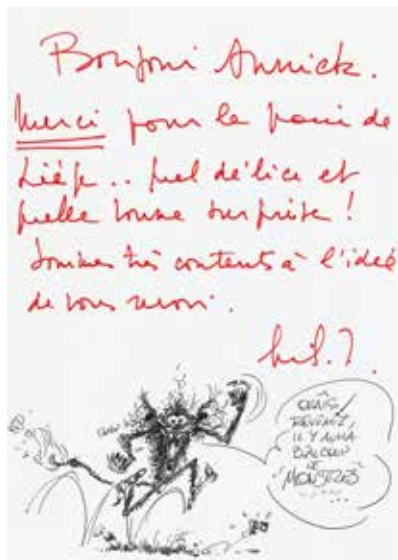 Bonjour Annick.
Merci pour le pain de
Liège.. quel délice et
quelle bonne surprise !
Sommes très contents à l'idée
de vous revoir.
REVENEZ,
IL Y AURA
BEAUCOUP
DE
"MONSTRES"